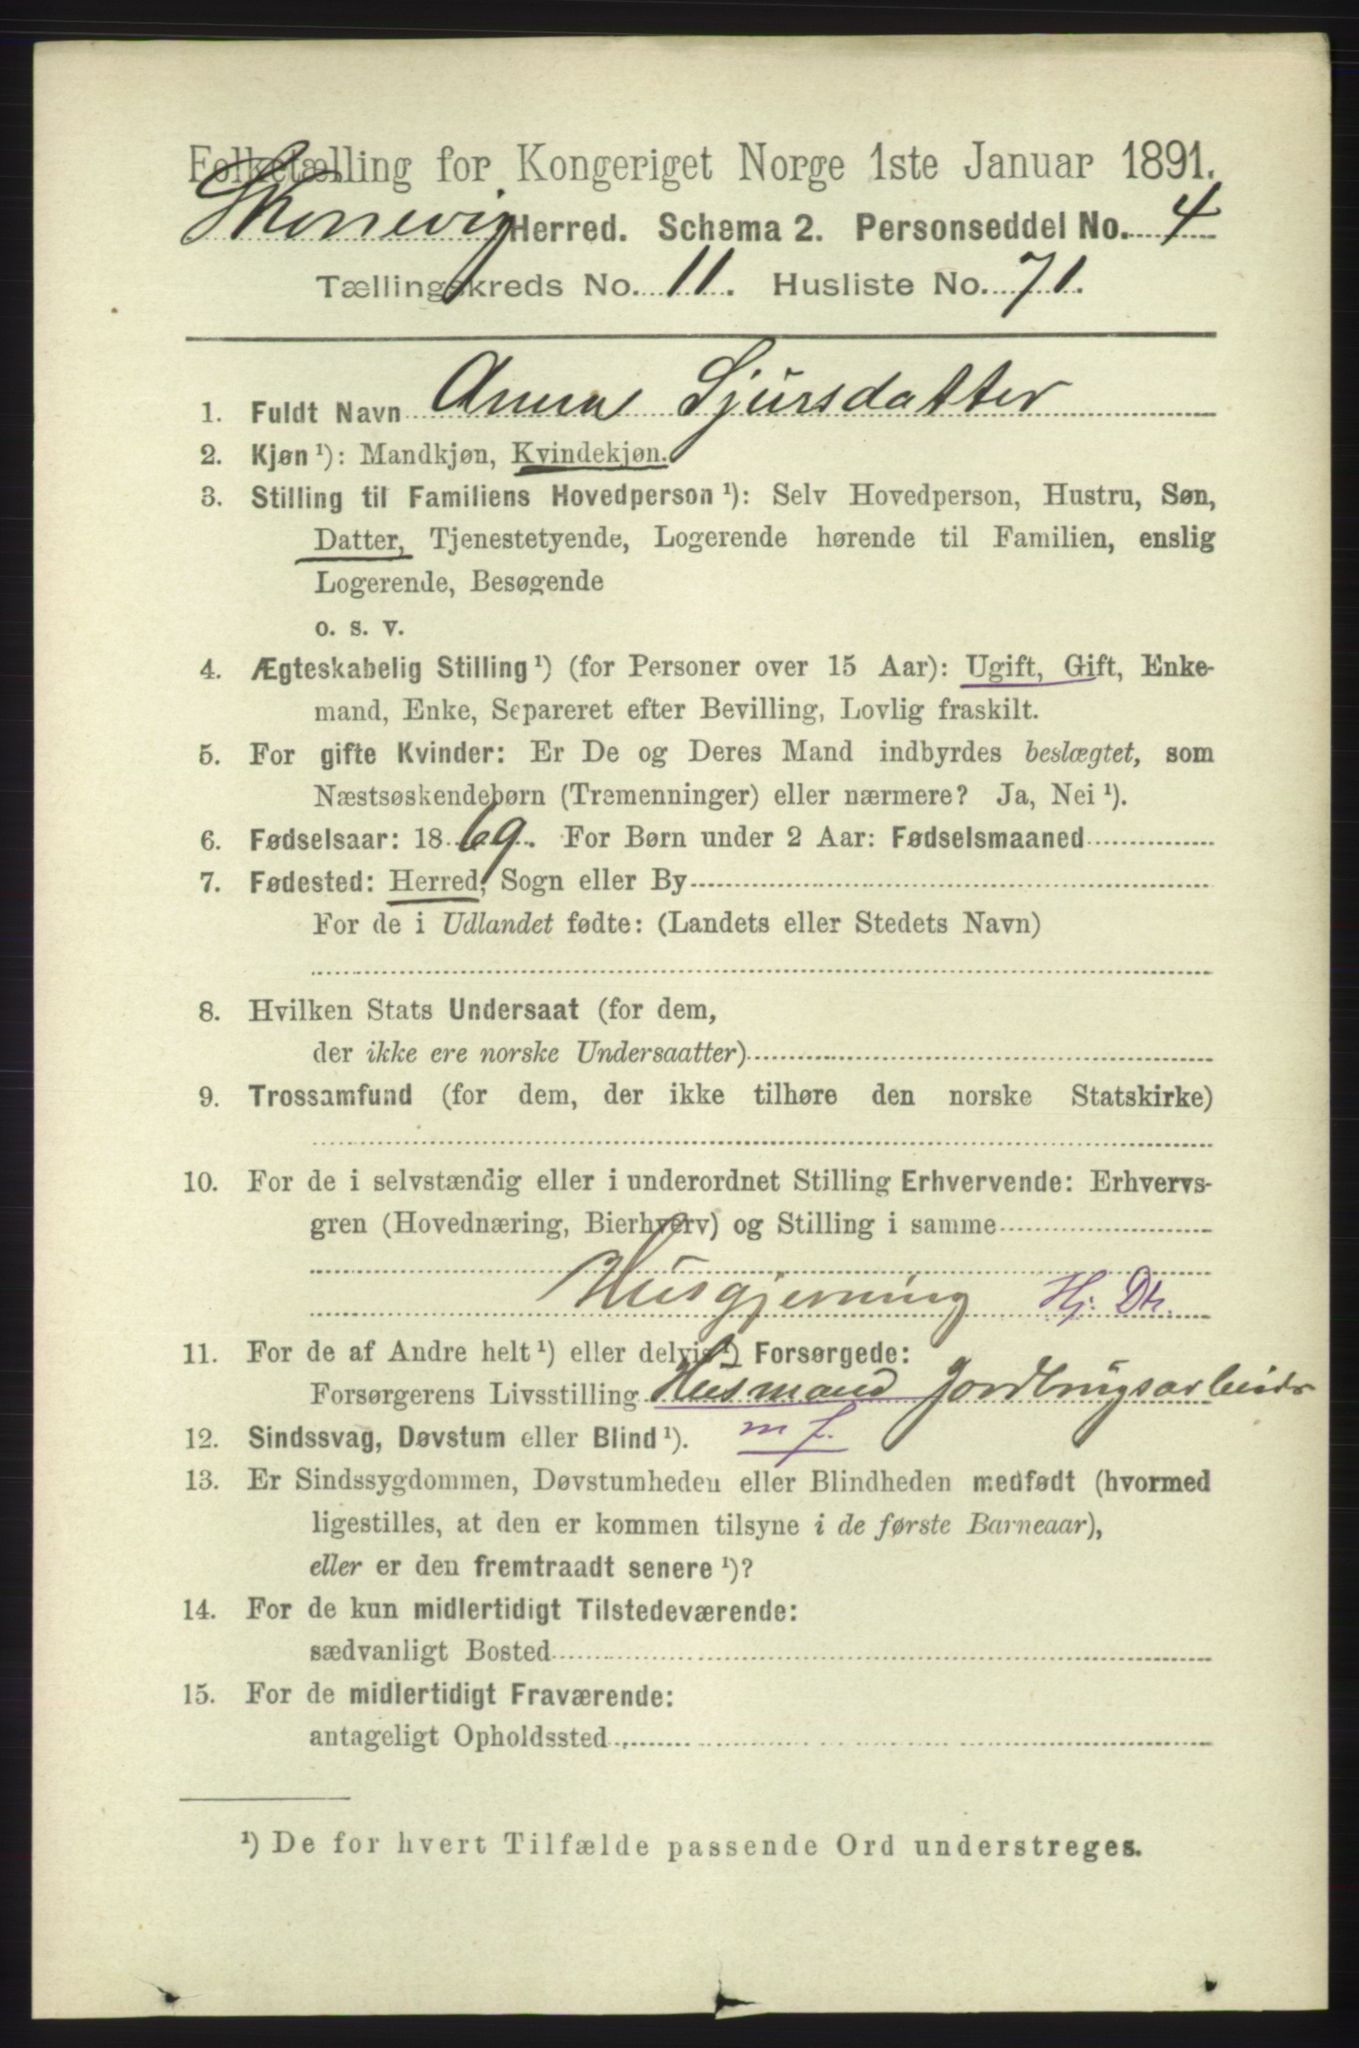 Folketælling for Kongeriget Norge 1ste Januar 1891.
Skonevig Herred. Schema 2. Personseddel No. 4
Tællingskreds No. 11. Husliste No. 71.
1. Fuldt Navn Anna Sjursdatter
2. Kjøn ¹): Mandkjøn, Kvindekjøn.
3. Stilling til Familiens Hovedperson ¹): Selv Hovedperson, Hustru, Søn,
Datter, Tjenestetyende, Logerende hørende til Familien, enslig
Logerende, Besøgende
o. s. v.
4. Ægteskabelig Stilling ¹) (for Personer over 15 Aar): Ugift, Gift, Enke-
mand, Enke, Separeret efter Bevilling, Lovlig fraskilt.
5. For gifte Kvinder: Er De og Deres Mand indbyrdes beslægtet, som
Næstsøskendebørn (Tremenninger) eller nærmere? Ja, Nei ¹).
6. Fødselsaar: 1869. For Børn under 2 Aar: Fødselsmaaned
7. Fødested: Herred, Sogn eller By
For de i Udlandet fødte: (Landets eller Stedets Navn)
8. Hvilken Stats Undersaat (for dem,
der ikke ere norske Undersaatter)
9. Trossamfund (for dem, der ikke tilhøre den norske Statskirke)
10. For de i selvstændig eller i underordnet Stilling Erhvervende: Erhvervs-
gren (Hovednæring, Bierhverv) og Stilling i samme
Husgjerning Hj: Dtr.
11. For de af Andre helt ¹) eller delvis ¹) Forsørgede:
Forsørgerens Livsstilling Husmand Jordbrugsarbeider
12. Sindssvag, Døvstum eller Blind ¹). m f.
13. Er Sindssygdommen, Døvstumheden eller Blindheden medfødt (hvormed
ligestilles, at den er kommen tilsyne i de første Barneaar),
eller er den fremtraadt senere ¹)?
14. For de kun midlertidigt Tilstedeværende:
sædvanligt Bosted
15. For de midlertidigt Fraværende:
antageligt Opholdssted
¹) De for hvert Tilfælde passende Ord understreges.